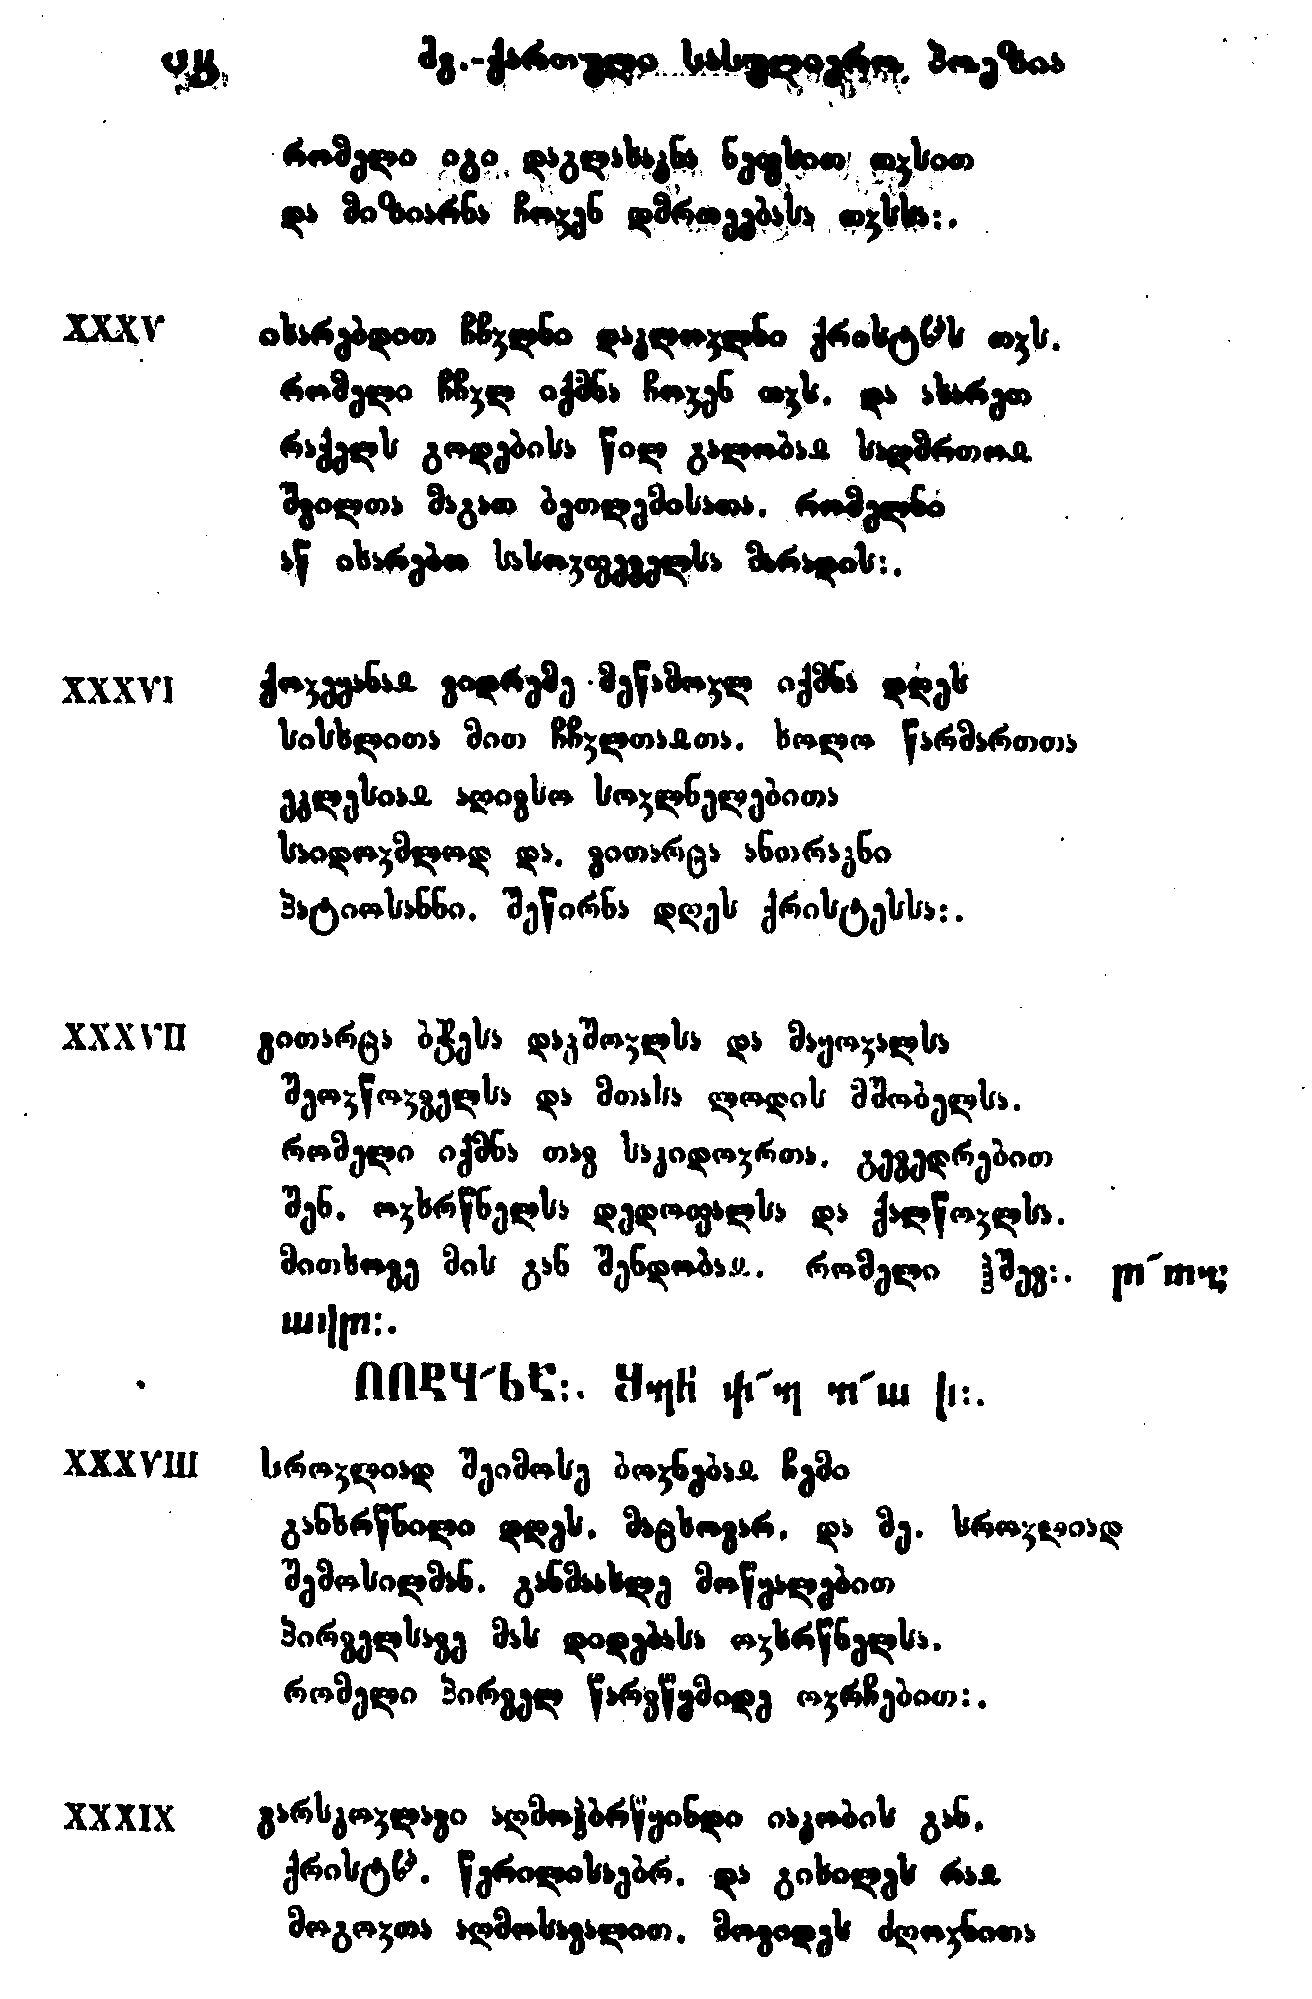 ჟყ ძვ.-ქართული სასულიერო პოეზია
რომელი იგი დაგლახაკნა ნეფსით თჳსით
და მიზიარნა ჩოჳენ ღმრთეებასა თჳსსა:.
XXXV იხარებდით ჩჩჳლნი დაკლოჳლნი ქრისტჱს თჳს.
რომელი ჩჩჳლ იქმნა ჩოჳენ თჳს. და ახარეთ
რაქელს გოდებისა წილ გალობაჲ საღმრთოჲ
შვილთა მაგათ ბეთლემისათა. რომელნი
აწ იხარებთ სასოჳფეველსა მარადის:.
XXXVI ქოჳეყანაჲ ვიდრემე მეწამოჳლ იქმნა დღეს
სისხლითა მით ჩჩჳლთაჲთა. ხოლო წარმართთა
ეკლესიაჲ აღივსო სოჳლნელებითა
საიდოჳმლოდ და. ვითარცა ანთრაკნი
პატიოსანნი. შეწირნა დღეს ქრისტესსა:.
XXXVII ვითარცა ბჭესა დაკშოჳლსა და მაყოჳალსა
შეოჳწოჳველსა და მთასა ლოდის მშობელსა.
რომელი იქმნა თავ საკიდოჳრთა. გევედრებით
შენ. ოჳხრწნელსა დედოფალსა და ქალწოჳლსა.
მითხოვე მის გან შენდობაჲ. რომელი ჰშევ:.
XXXVIII სროჳლიად შეიმოსე ბოჳნებაჲ ჩემი
განხრწნილი დღეს. მაცხოვარ. და მე. სროჳლიად
შემოსილმან. განმაახლე მოწყალებით
პირველსავე მას დიდებასა ოჳხრწნელსა.
რომელი პირველ წარვწყმიდე ოჳრჩებით:.
XXXIX ვარსკოჳლავი აღმოჰბრწყინდი იაკობის გან.
ქრისტჱ. წერილისაებრ. და გიხილეს რაჲ
მოგოჳთა აღმოსავალით. მოვიდეს ძღოჳნითა